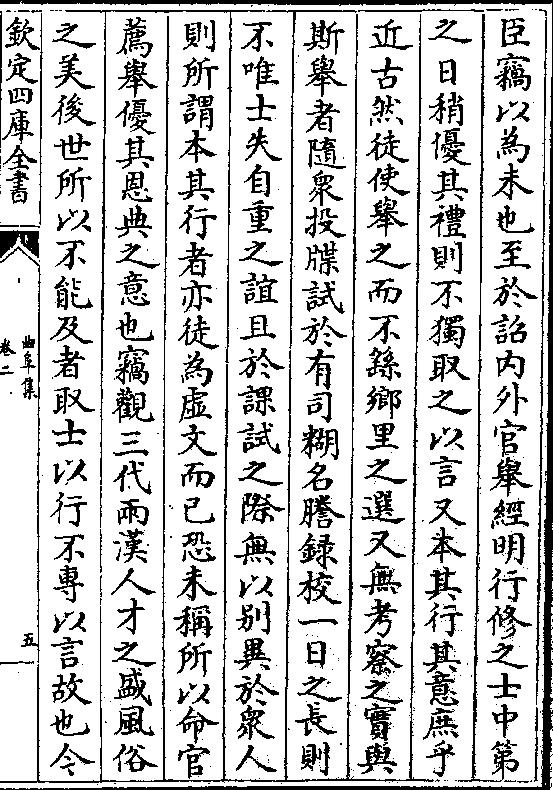 臣竊以為未也至於詔内外官舉經明行修之士中第
之日稍優其禮則不獨取之以言又本其行其意庶乎
近古然徒使舉之而不繇鄉里之選又無考察之實與
斯舉者隨衆投牒試於有司糊名謄録校一日之長則
不唯士失自重之誼且於課試之際無以别異於衆人
則所謂本其行者亦徒為虚文而已恐未稱所以命官
薦舉優其恩典之意也竊觀三代兩漢人才之盛風俗
之美後世所以不能及者取士以行不專以言故也今
欽定四庫全書
曲阜集
卷二
五